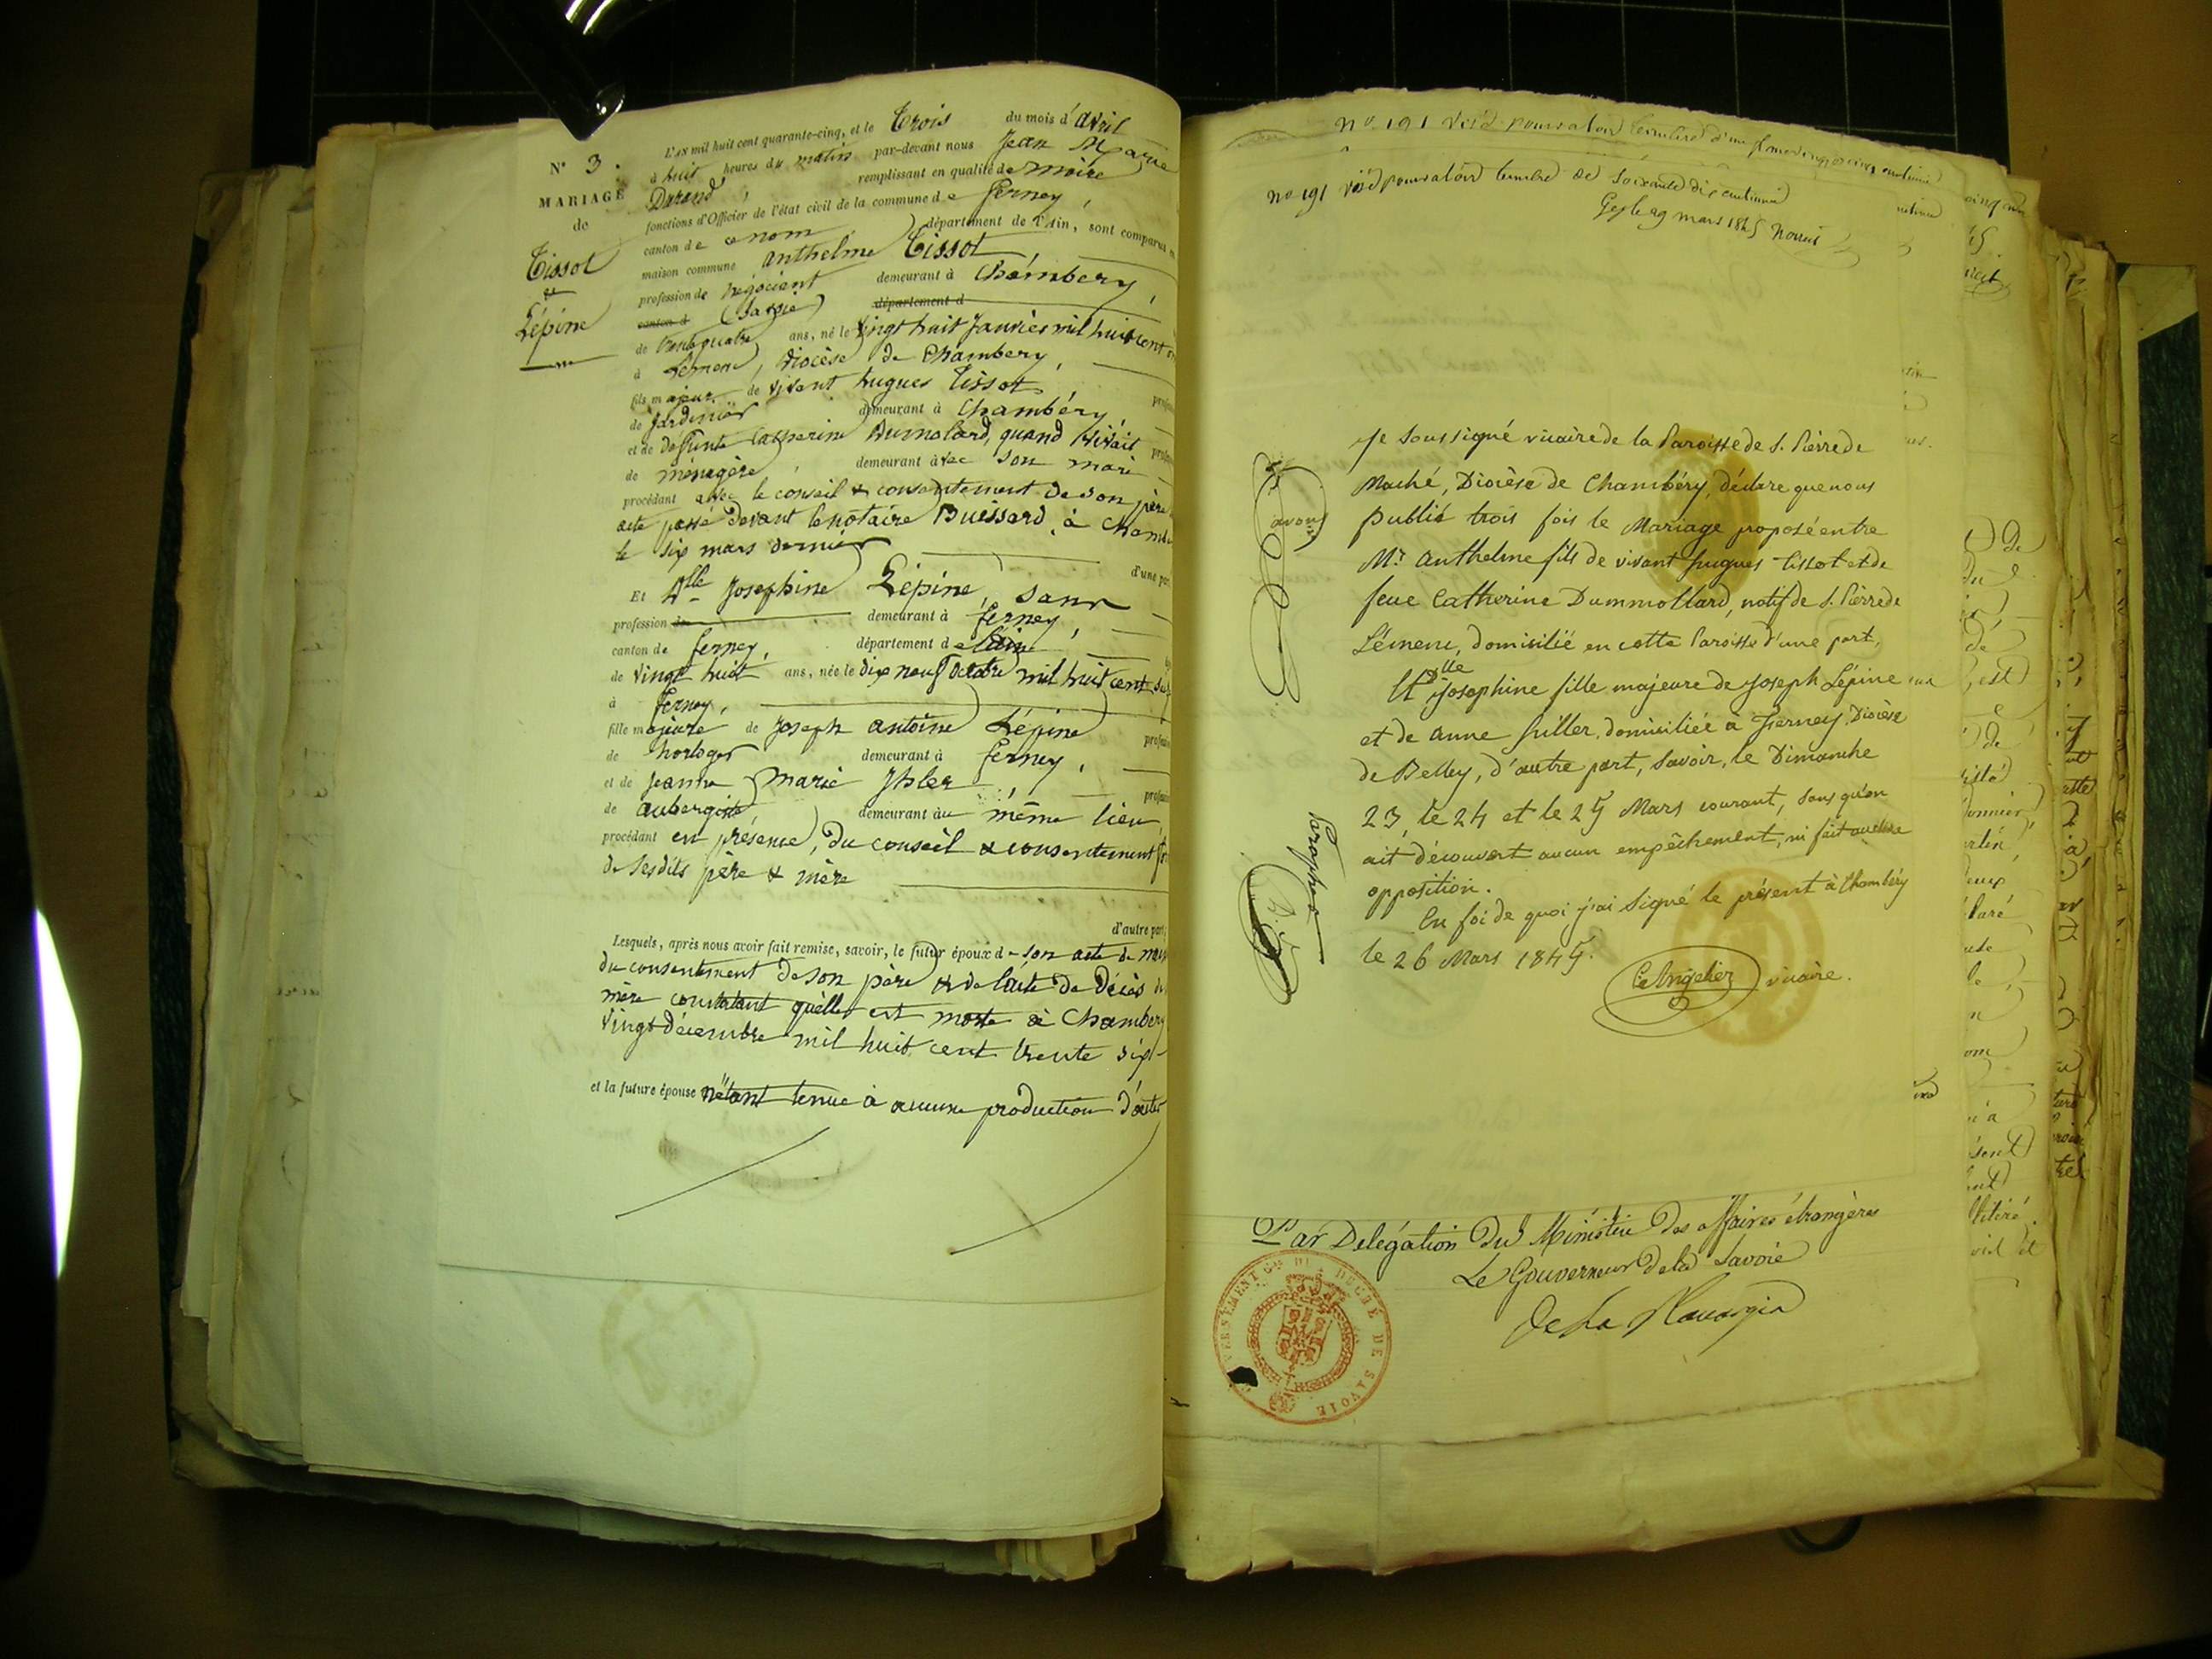 N° 3.
MARIAGE
de
Tissot
et
Lépine
L'an mil huit cent quarante-cinq, et le Trois du mois d'avril
à huit heures du matin par-devant nous Jean Marie
Durand remplissant en qualité de maire
fonctions d'Officier de l'état civil de la commune de ferney,
canton de ce nom département de l'Ain, sont comparus
maison commune anthelme Tissot
profession de négociant demeurant à Chambery,
canton d (Savoie) département d
de trente quatre ans, né le vingt huit Janvier mil huit cent
à Lemenc, diocèse de Chambery,
fils majeur de vivant hugues Tissot
de Jardinier demeurant à Chambéry,
et de defunte Catherine Dumolard, quand vivait
de ménagère demeurant avec son mari
procédant avec le conseil & consentement de son père
acte passé devant le notaire Buissard, à Chambé
le six mars dernier
d'une part
Et Dlle Josephine Lépine, sans
profession de demeurant à ferney,
canton de ferney, département de l'ain
de vingt huit ans, née le dix neuf octobre mil huit cent
à ferney,
fille majeure de Joseph antoine Lépine
de horloger demeurant à ferney,
et de Jeanne Marie Ihler,
de aubergiste demeurant au même lieu
procédant en présence, du conseil & consentement
de sesdits père & mère
d'autre part
Lesquels, après nous avoir fait remise, savoir, le futur époux de son acte de
du consentement de son père & de l'acte de décès de
mère constatant qu'elle est morte à Chambery
vingt décembre mil huit cent trente six
et la future épouse n'étant tenue à aucune production d'acte
No 191 visé pour valoir timbre de soixante dix centimes
Gex le 29 mars 1845
Je soussigné vicaire de la Paroisse de S. Pierre de
Maché, Diocèse de Chambéry, déclare que nous
avons
publié trois fois le Mariage proposé entre
Mr. Anthelme fils de vivant hugues Tissot et de
feue Catherine Dummollard, natif de S. Pierre de
Lémenc, domicilié en cette Paroisse d'une part,
Et Dlle Josephine fille majeure de Joseph Lépine
et de anne hiller, domiciliée à Ferney, Diocèse
de Belley, d'autre part, savoir, le Dimanche
23, le 24 et le 25 Mars courant, sans qu'on
ait découvert aucun empêchement, ni fait aucune
opposition.
En foi de quoi j'ai signé le présent à Chambéry
le 26 Mars 1845.
C. Angelier vicaire.
Paraphes
Par Délégation du Ministère des affaires étrangères
Le Gouverneur de la Savoie
DU DUCHÉ DE SAVOIE